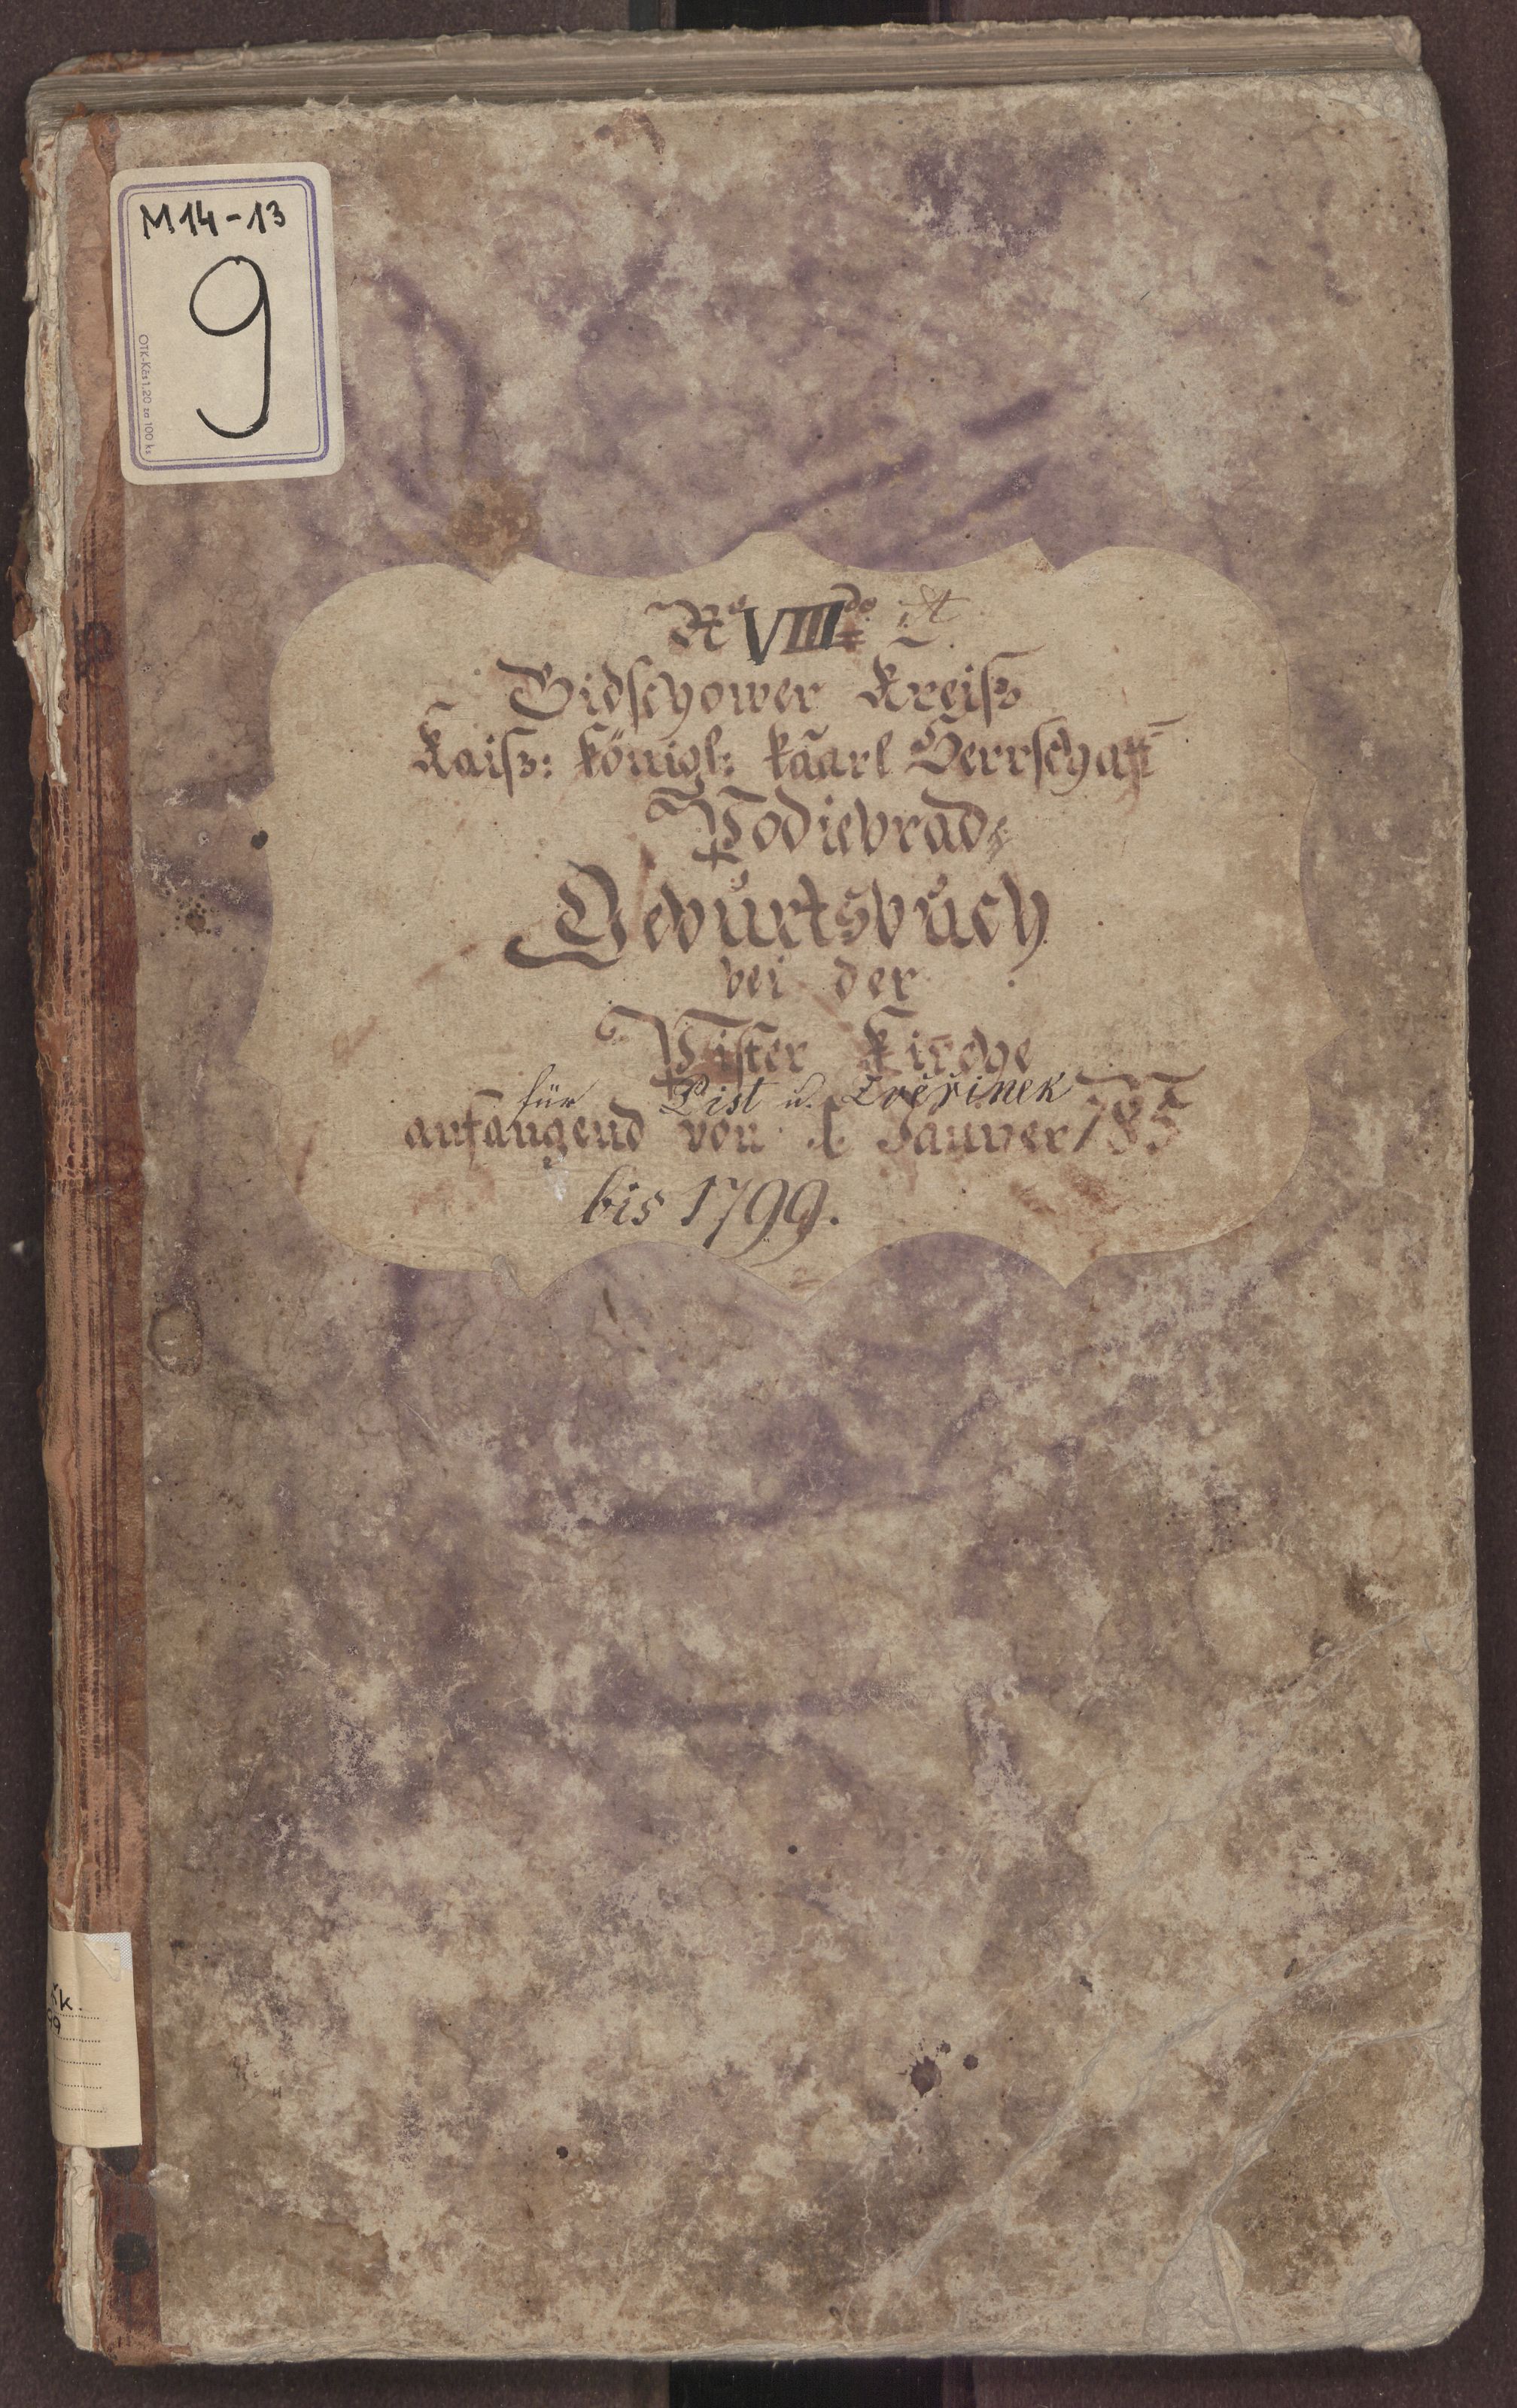 M14-13
9
OTK-Kčs 1,20 za 100 ks
No VIII
Bidschower Kreiß
Kaiß: königl: kaarl Herrschaft
Podiebrad
Geburtsbuch
bei der
Pister Kirche
für Pist u. Zvěřinek
anfangend von 1 Jänner 785
bis 1799.
kk.
99